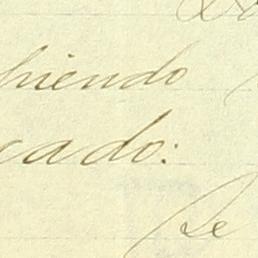 hiendo
cado:
Se